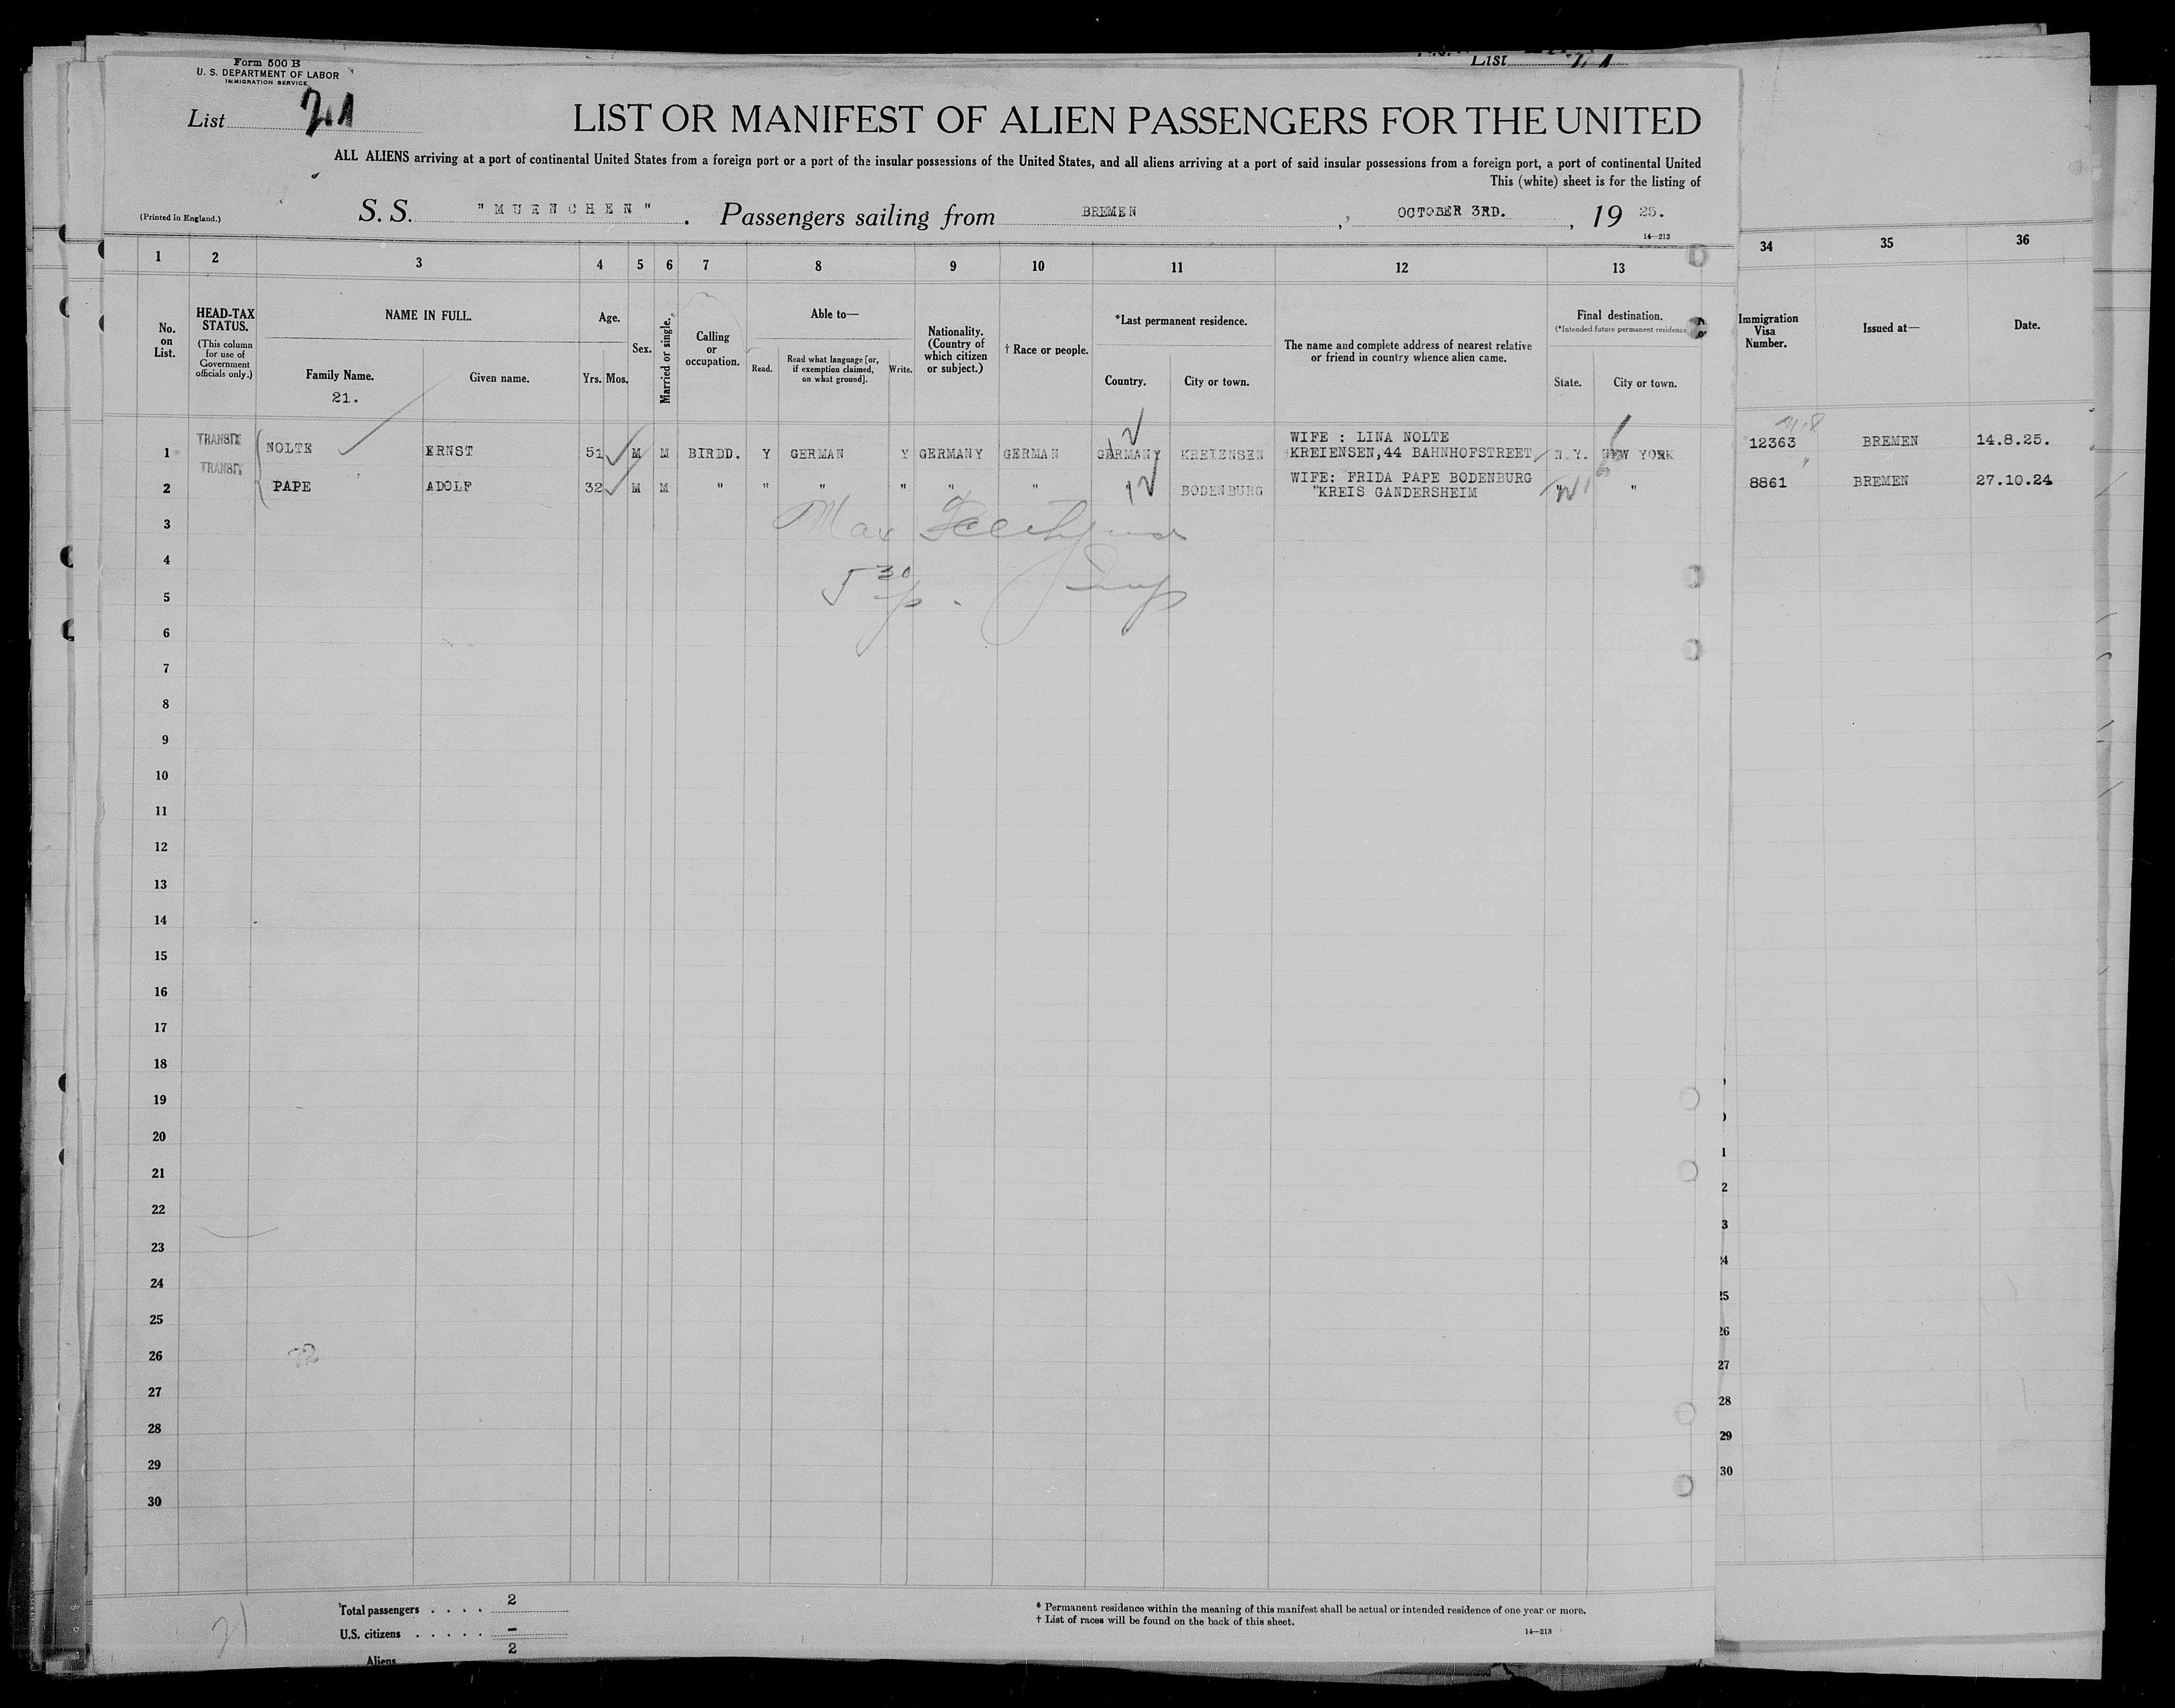 Form 500 B
U. S. DEPARTMENT OF LABOR
IMMIGRATION SERVICE
List 21
List
LIST OR MANIFEST OF ALIEN PASSENGERS FOR THE UNITED
ALL ALIENS arriving at a port of continental United States from a foreign port or a port of the insular possessions of the United States, and all aliens arriving at a port of said insular possessions from a foreign port, a port of continental United
This (white) sheet is for the listing of
(Printed in England.)
S. S. "MUENCHEN". Passengers sailing from BREMEN, OCTOBER 3RD., 19 25.
14—213
1 2 3 4 5 6 7 8 9 10 11 12 13 34 35 36
No. on List.
HEAD-TAX STATUS.
(This column for use of Government officials only.)
NAME IN FULL.
Family Name.
21.
Given name.
Age.
Yrs. Mos.
Sex.
Married or single.
Calling or occupation.
Able to—
Read.
Read what language [or, if exemption claimed, on what ground].
Write.
Nationality. (Country of which citizen or subject.)
† Race or people.
*Last permanent residence.
Country.
City or town.
The name and complete address of nearest relative or friend in country whence alien came.
Final destination.
(*Intended future permanent residence
State.
City or town.
Immigration Visa Number.
Issued at—
Date.
WIFE : LINA NOLTE
1 TRANSIT NOLTE ERNST 51 M M BIRDD. Y GERMAN Y GERMANY GERMAN GERMANY KREIENSEN KREIENSEN,44 BAHNHOFSTREET N.Y. NEW YORK 12363 BREMEN 14.8.25.
TRANSIT
WIFE: FRIDA PAPE BODENBURG
2 PAPE ADOLF 32 M M " " " " " " " BODENBURG "KREIS GANDERSHEIM " " 8861 BREMEN 27.10.24
3 Max
4
5 5 30
6
7
8
9
10
11
12
13
14
15
16
17
18
19
20
21
22
23
24
25
26
27
28
29
30
1
2
3
24
25
26
27
28
29
30
21
Total passengers . . . . 2
U.S. citizens . . . . . —
Aliens 2
* Permanent residence within the meaning of this manifest shall be actual or intended residence of one year or more.
† List of races will be found on the back of this sheet.
14—213